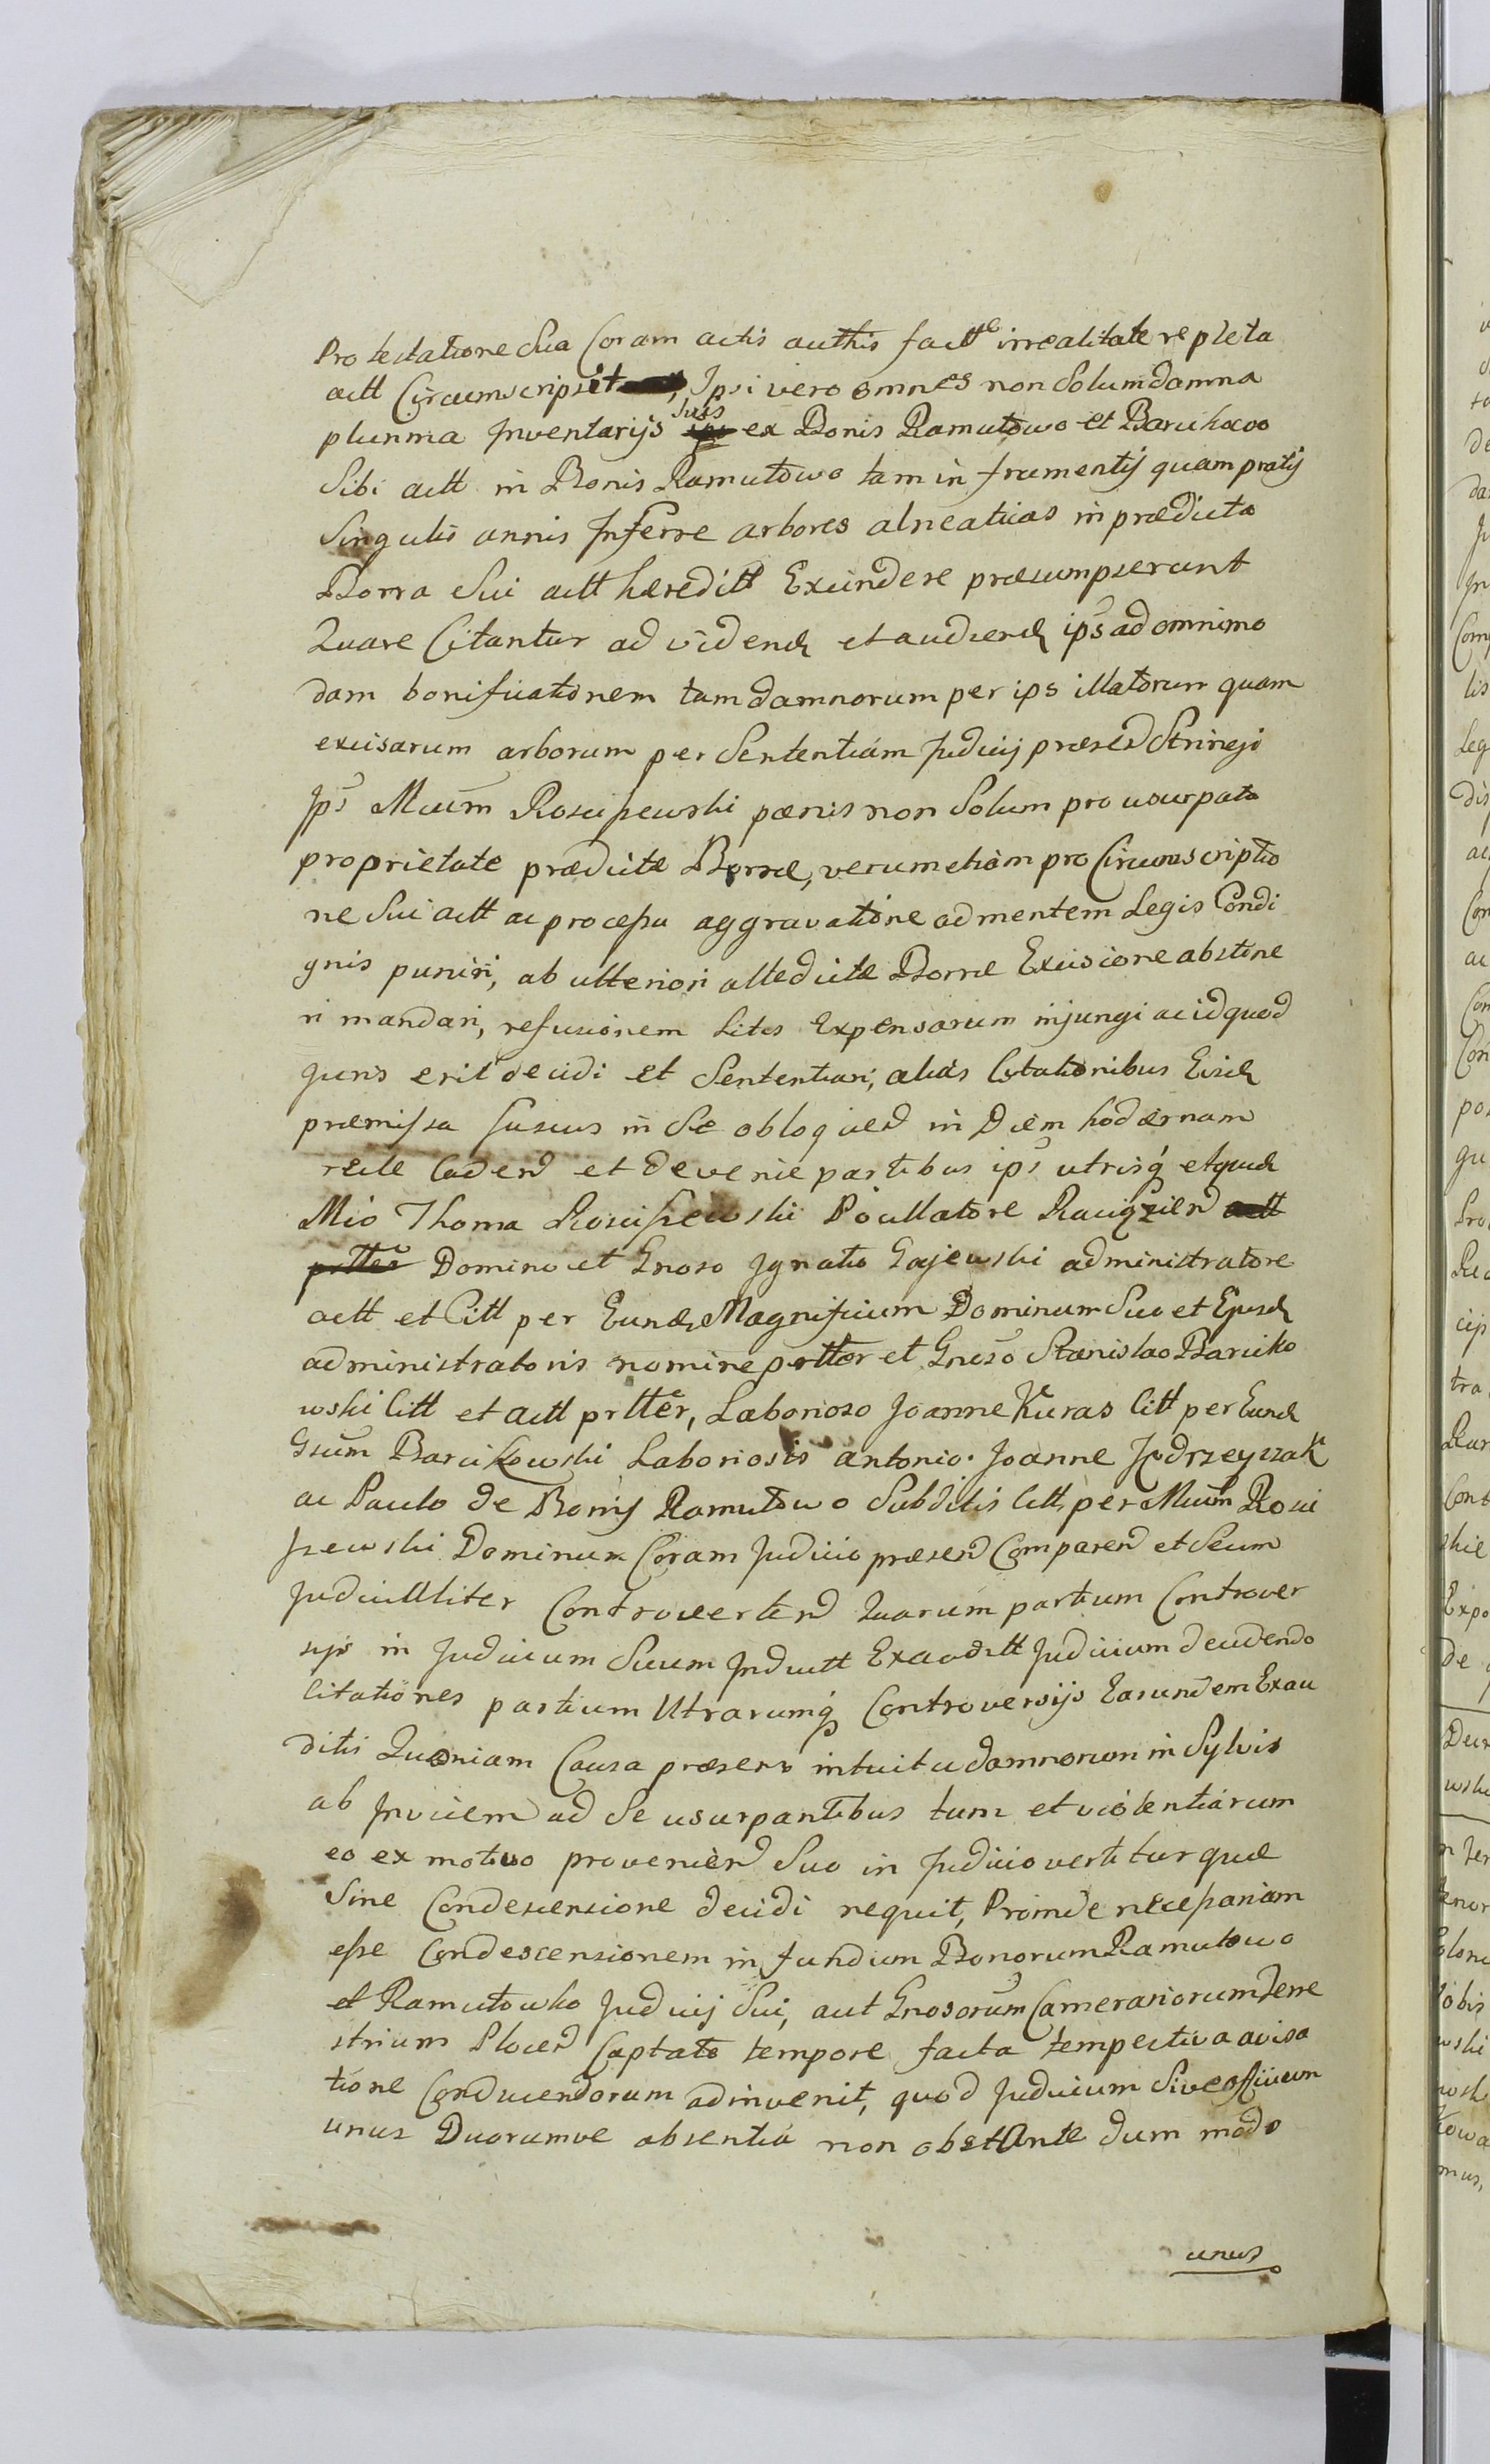 Protestatione Sua Coram actis authis factte irrealitate repleta
actt Circumscripsit Ipsi vero omnes non Solum damna
plurima Inventarijs suis ex Bonis Ramutowo et Barcikowo
Sibi actt in Bonis Ramutowo tam in frumentij quam pratij
Singulis annis Inferre arbores alneaticas in prædicta
Borra Sui actt hæreditt Excindere præsumpserunt
Quare Citantur ad videnđ et audienđ ips ad omnimo
dam bonificationem tam damnorum per ips illatorum quam
excisarum arborum per Sententiam Judicij præsend Stringi
Ips Mcum Rosciszewski pænis non Solum pro usurpata
proprietate prædictæ Borræ, verum etiam pro Circumscriptio
ne Sui actt ac processu aggravatione ad mentem Legis Condi
gnis puniri, ab ulteriori alledictæ Borræ Excisione abstine
ri mandari, refusionem Litis Expensarum injungi ac id quod
juris erit decidi et Sententiari, aliás Citationibus Eisđ
præmissa fusius in Se obloquend in Diem hodiernam
recte Cadend et devenie partibus ips utrisq́ et quidđ
Mco Thoma Rosciszewski Pocillatore Raciązend actt
prtter Domino et Gnoso Ignatio Gajewski administratore
actt et Citt per Eunđ Magnificum Dominum Suo et Ejusđ
administratoris nomine prtter et Gnoso Stanislao Barciko
wski Citt et actt prtter, Laborioso Joanne Kuras Citt per Eunđ
Gsum Barcikowski Laboriosis antonio. Joanne Jędrzeyczak
ac Paulo de Bonis Ramutowo Subditis Citt per Mcum Rosci
szewski Dominum Coram Judicio præsend Comparend et Secum
Judicialliter Controvertend Quarum partium Controver
sijs in Judicium Suum Inductt Exauditt Judicium decidendo
Citationes partium Utrarumq́ Controversijs Earundem Exau
ditis Quoniam Causa præsens intuitu damnorum in Sylvis
ab Invicem ad Se usurpantibus tum et violentiarum
eo ex motivo proveniend Suo in Judicio vertitur quæ
Sine Condescensione decidi nequit, Proinde necessariam
esse Condescensionem in fundum Bonorum Ramutowo
et Ramutowko Judicij Sui, aut Gnosorum Camerariorum Terre
strium Plocend Captato tempore facta tempectiva avisa
tione Conducendorum adinvenit, quod Judicium Sive officium
unus Duorumve absentia non obstante dum modo
unus